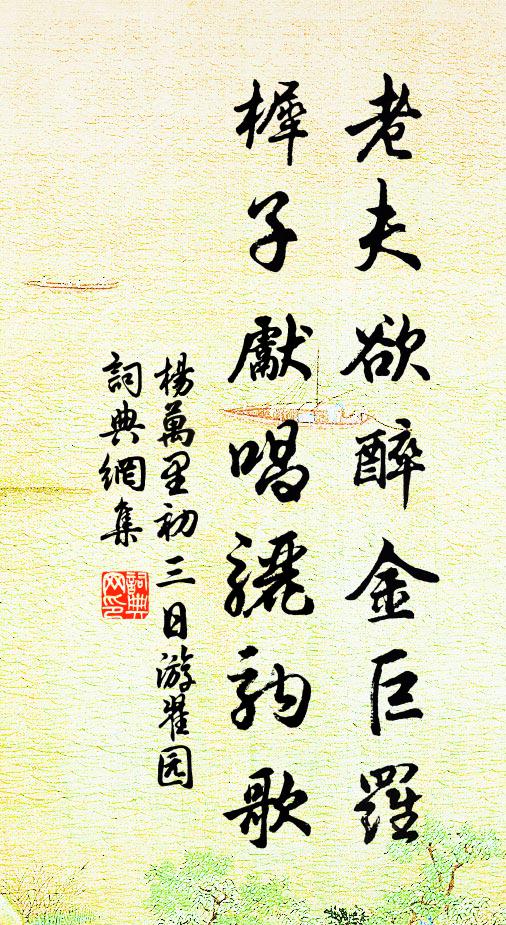 老夫欲醉金叵羅
穉子獻唱驪駒歌
楊萬里初三日游翟园
詞典網集
詞典网印